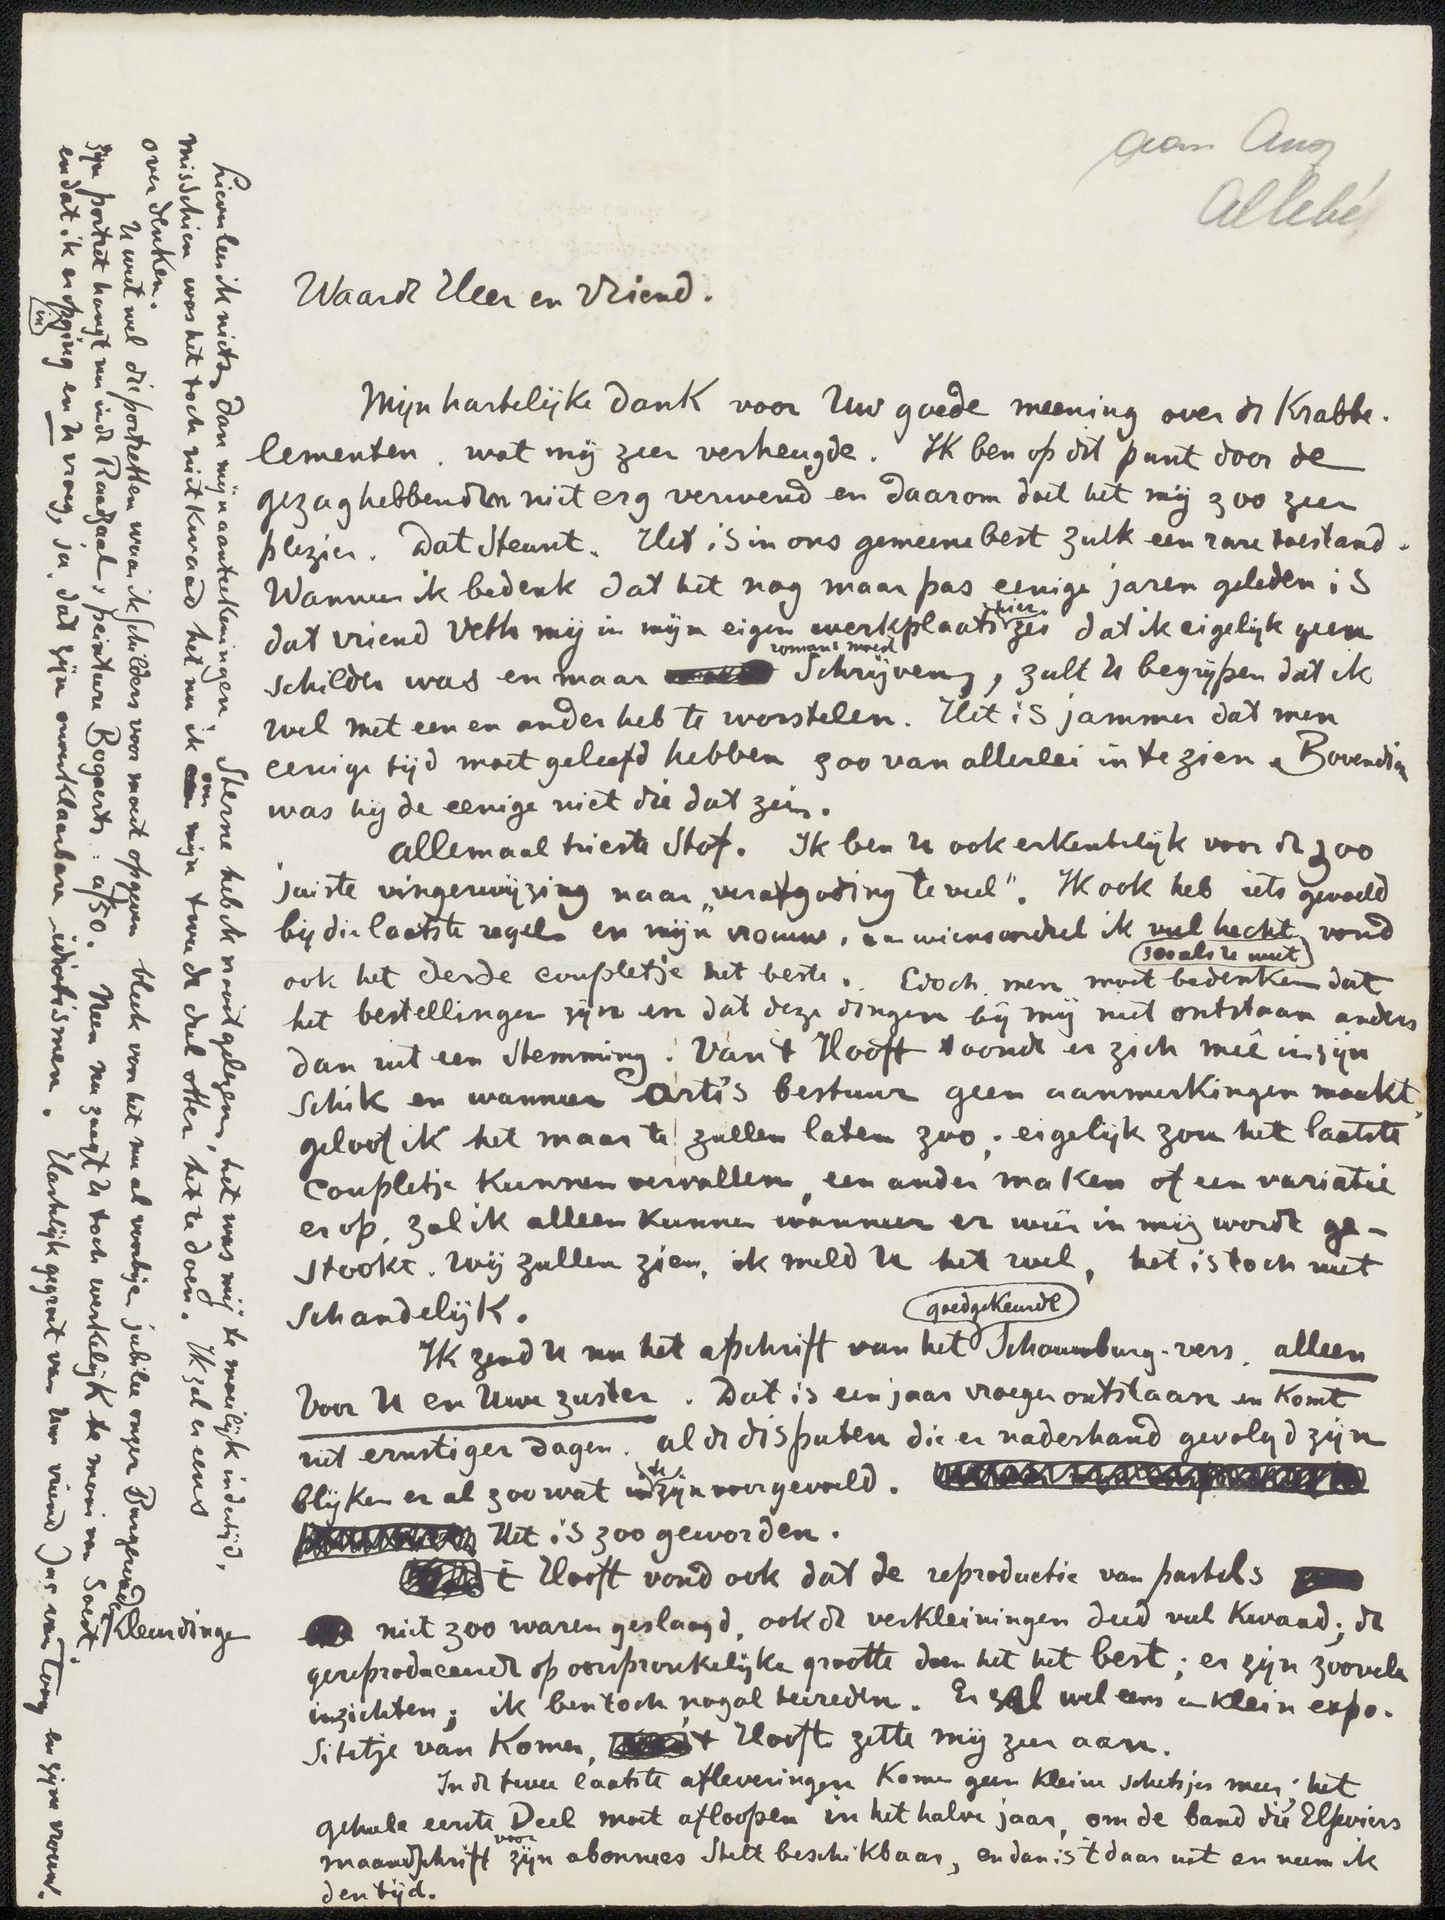 aan Aug
Allebé
Waarde Heer en Vriend.
Mijn hartelijke dank voor Uw goede meening over de Krabbe-
lementen. wat mij zeer verheugde. Ik ben op dit punt door de
gezaghebbenden niet erg verwend en daarom doet het mij zoo zeer
plezier. Dat steunt. Het is in ons gemeenebest zulk een rare toestand.
Wanneer ik bedenk dat het nog maar pas eenige jaren geleden is
dat vriend Veth mij in mijn eigen werkplaats hier zei dat ik eigelijk geen
schilder was en maar romans moest schrijven, zult U begrijpen dat ik
wel met een en ander heb te worstelen. Het is jammer dat men
eenige tijd moet geleefd hebben zoo van allerlei in te zien. Bovendien
was hij de eenige niet die dat zei.
Allemaal trieste stof. Ik ben U ook erkentelijk voor de zoo
juiste vingerwijzing naar „verafgoding te veel”. Ik ook heb iets gevoeld
bij die laatste regel en mijn vrouw, aan wiens oordeel ik veel hecht, zooals U weet vond
ook het derde coupletje het beste. Edoch men moet bedenken dat
het bestellingen zijn en dat deze dingen bij mij niet ontstaan anders
dan uit een stemming. Van 't Hooft toonde er zich meê in zijn
schik en wanneer Arti's bestuur geen aanmerkingen maakt,
geloof ik het maar te zullen laten zoo; eigelijk zou het laatste
coupletje kunnen vervallen, een ander maken of een variatie
er op, zal ik alleen kunnen wanneer er weer in mij wordt ge-
stookt. Wij zullen zien, ik meld U het wel, het is toch niet
schandelijk.
Ik zend U nu het afschrift van het goedgekeurde Schouwburg-vers, alleen
voor U en Uwe zuster. Dat is een jaar vroeger ontstaan en komt
uit ernstiger dagen. Al de disputen die er naderhand gevolgd zijn
blijken er al zoo wat in te zijn voorgevoeld.
Het is zoo geworden.
't Hooft vond ook dat de reproductie van pastels
niet zoo waren geslaagd, ook de verkleiningen deed veel kwaad; de
gereproduceerde op oorspronkelijke grootte doen het het best; er zijn zoovele
inzichten; ik ben toch nogal tevreden. Er zal wel eens een klein expo-
sitetje van komen, 't Hooft zette mij zeer aan.
In de twee laatste afleveringen komen geen kleine schetsjes meer; het
geheele eerste Deel moet afloopen in het halve jaar, om de band die Elseviers
maandschrift voor zijn abonnees stelt beschikbaar, en dan is 't daar uit en neem ik
den tijd.
hieronder ik niets dan mijn aanteekeningen. Sterne heb ik nooit gelezen, het was mij te moeilijk indertijd,
misschien was het toch niet kwaad het nu ik aan mijn tweede deel otter, het te doen. Ik zal er eens
over denken.
U weet wel die portretten waar ik schilders voor moest opgeven bleek van het nu al voorbije jubilé onzer Burgerinde
Kleurdinge
zijn portret hangt nu in de Raadzaal, peinture Bogaerts: à f50. Neen nu zoogt U toch werkelijk te mooi van Soest,
en dat ik er in opging en U vroeg, ja, dat zijn onverklaarbare idiotismen. Hartelijk gegroet van Uw vriend Jac van Looy en zijn vrouw.